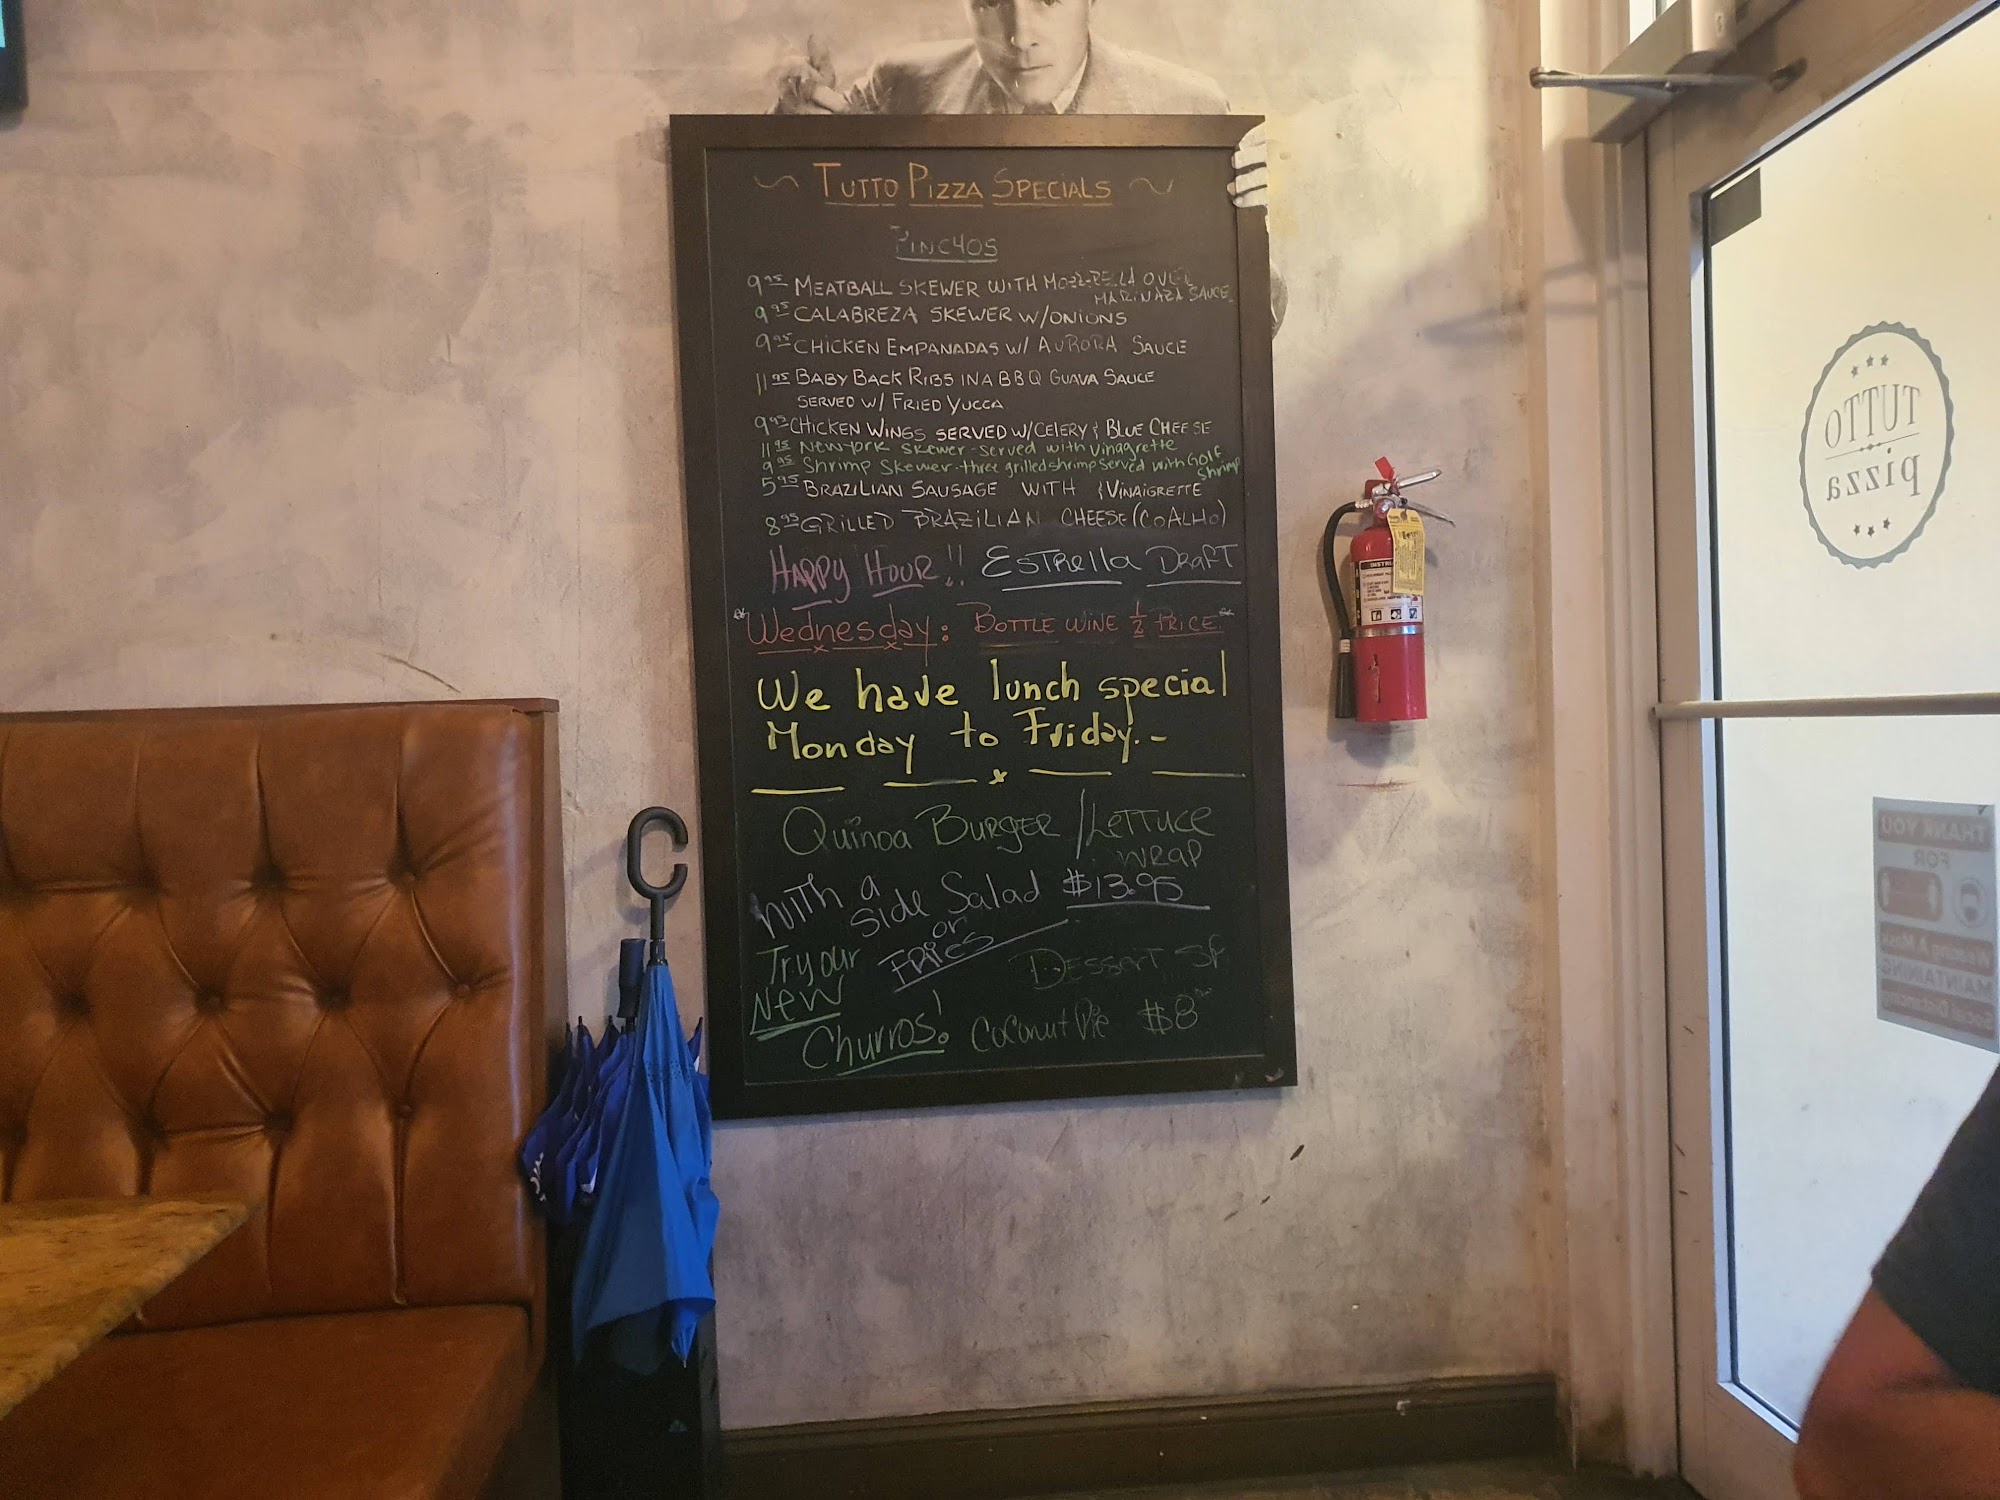 TUTTO PIZZA SPECIALS
PINCHOS
9.95 MEATBALL SKEWER WITH MOZZARELLA OVER
MARINARA SAUCE
9.95 CALABREZA SKEWER W/ONIONS
9.95 CHICKEN EMPANADAS W/ AURORA SAUCE
11.95 BABY BACK RIBS IN A BBQ GUAVA SAUCE
SERVED W/ FRIED YUCCA
9.95 CHICKEN WINGS SERVED W/CELERY & BLUE CHEESE
11.95 Newyork skewer - served with Vinagrette
9.95 Shrimp Skewer - three grilled shrimp served with GOLF
Shrimp
5.95 BRAZILIAN SAUSAGE WITH VINAIGRETTE
8.95 GRILLED BRAZILIAN CHEESE (COALHO)
HAPPY HOUR!! ESTRELLA DRAFT
Wednesday: BOTTLE WINE 1/2 PRICE
We have lunch special
Monday to Friday.-
QUINOA BURGER / LETTUCE
WRAP
WITH a Side Salad $13.95
or
FRIES
Try our
NEW
Churros!
DESSERT
COCONUT PIE $8
TUTTO
pizza
THANK YOU
FOR
Wearing A Mask
MAINTAINING
Social Distancing